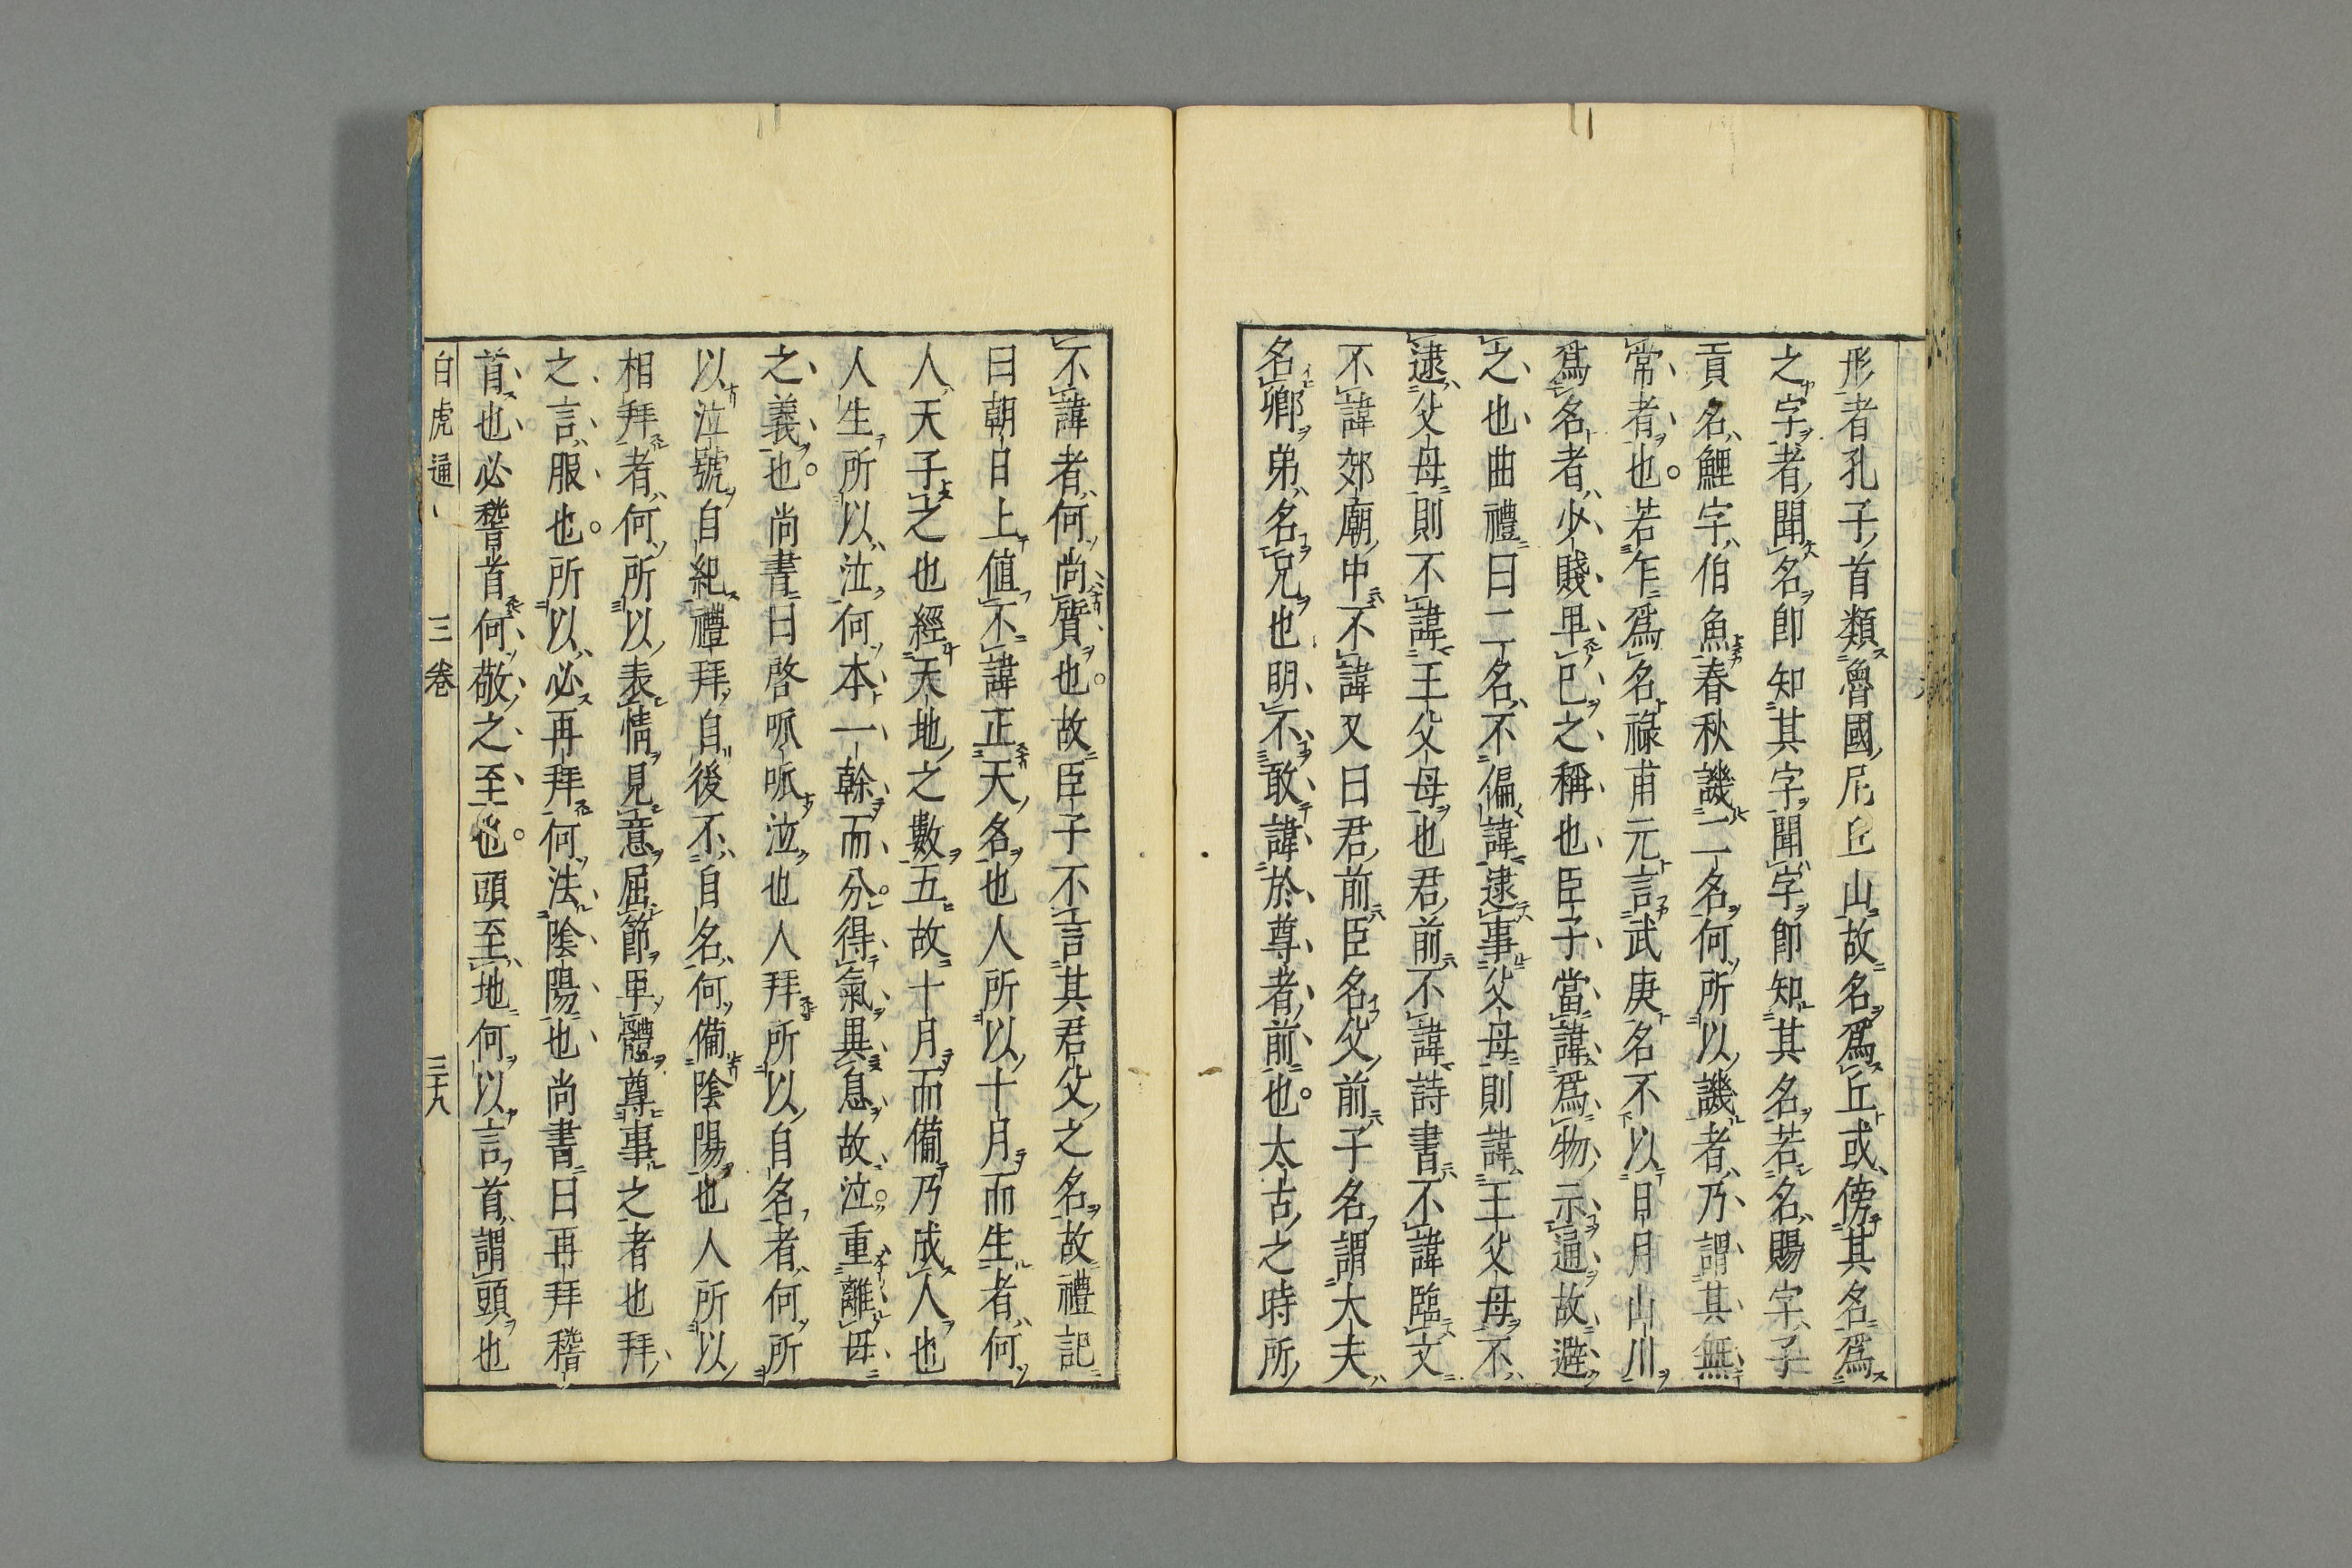 形者孔子首類魯國尼丘山故名爲丘或傍其名爲
之字者聞名卽知其字聞字卽知其名若名賜字子
貢名鯉字伯魚春秋譏二名何所以譏者乃謂其無
常者也若乍爲名祿甫元言武庚名不以日月山川
爲名者必賤卑已之稱也臣子當諱爲物示通故避
之也曲禮曰二名不偏諱逮事父母則諱王父母不
逮父母則不諱王父母也君前不諱詩書不諱臨文
不諱郊廟中不諱又曰君前臣名父前子名謂大夫
名卿弟名兄也明不敢諱於尊者前也太古之時所
不諱者何尚質也故臣子不言其君父之名故禮記
曰朝日上值不諱正天名也人所以十月而生者何
人天子之也經天地之數五故十月而備乃成人也
人生所以泣何本一幹而分得氣異息故泣重離母
之義也尚書曰啓呱呱泣也人拜所以自名者何所
以泣號自紀禮拜自後不自名何備陰陽也人所以
相拜者何所以表情見意屈節卑體尊事之者也拜
之言服也所以必再拜何法陰陽也尚書曰再拜稽
首也必稽首何敬之至也頭至地何以言首謂頭也
白虎通 三卷 三十八